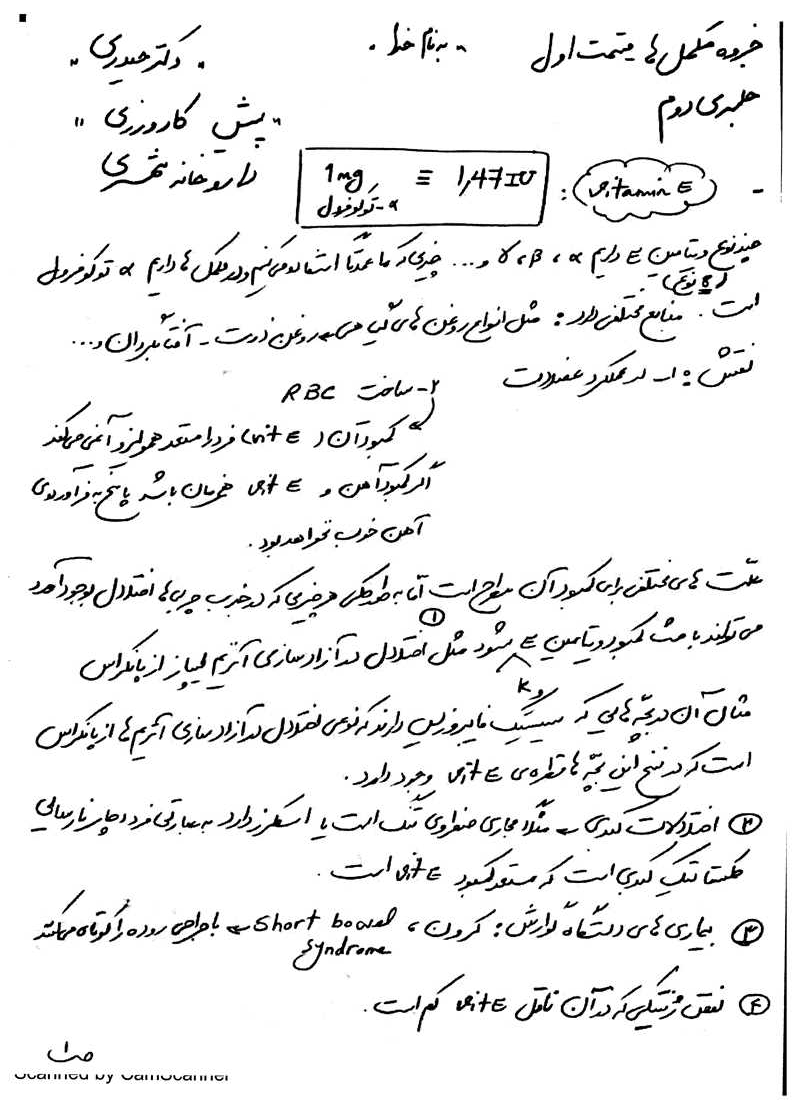 جزوه مکمل ها قسمت اول "به نام خدا" "دکتر حیدری"
جلسه ی دوم "پیش کارورزی"
داروخانه شهری
- vitamin E : 1mg ≡ 1,47 IU
α-توکوفرول
چند نوع ویتامین E داریم α ، β ، γ و ... چیزی که ما عمدتا استفاده می کنیم و در مکمل ها داریم α توکوفرول
(8 نوع)
است. منابع مختلفی دارد: مثل انواع روغن های گیاهی → روغن ذرت - آفتابگردان و...
نقش: 1- در عملکرد عضلات
2- ساخت RBC
کمبود آن (vit E) فرد را مستعد همولیز و آنمی می کند
اگر کمبود آهن و vit E همزمان باشد پاسخ به فرآورده ی
آهن خوب نخواهد بود.
علت های مختلفی برای کمبود آن مطرح است اما به طور کلی هر چیزی که در جذب چربی ها اختلال بوجود آورد
می تواند باعث کمبود ویتامین E شود مثل ① اختلال در آزادسازی آنزیم لیپاز از پانکراس
و k
مثال آن در بچه هایی که سیستیک فایبروزیس دارند که نوعی اختلال در آزادسازی آنزیم ها از پانکراس
است که در نسخ این بچه ها قطره ی vit E وجود دارد.
② اختلالات کبدی → مثلا مجاری صفراوی تنگ است یا اسکلروز دارد به عبارتی فرد دچار نارسایی
کلستاتیک کبدی است که مستعد کمبود vit E است.
③ بیماری های دستگاه گوارش: کرون، short bowel → با جراحی روده را کوتاه می کنند
syndrome
④ نقص ژنتیکی که در آن ناقل vit E کم است.
ص1
Scanned by CamScanner